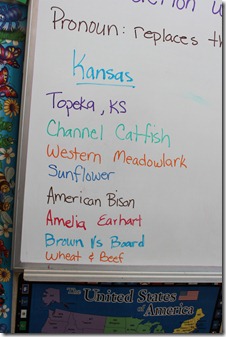 Pronoun: replaces
Kansas
Topeka, KS
Channel Catfish
Western Meadowlark
Sunflower
American Bison
Amelia Earhart
Brown Vs Board
Wheat & Beef
The United States
of America